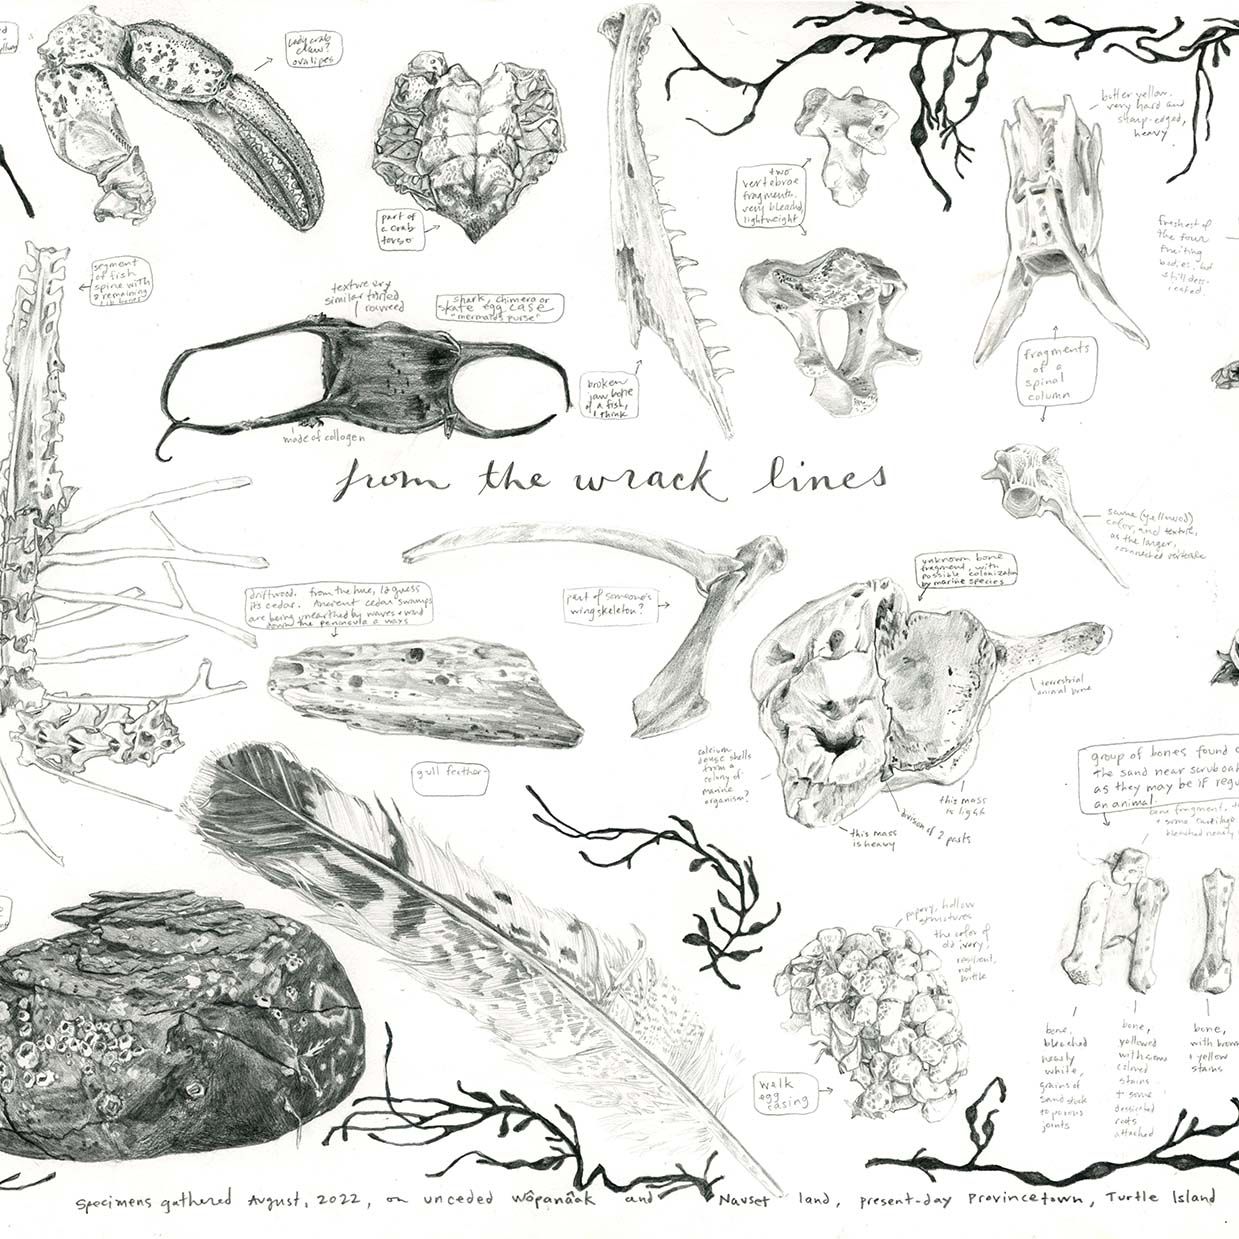 lady crab
claw?
ovalipes
part of
a crab
torso
segment
of fish
spine with
2 remaining
rib bones
texture very
similar to dried
rockweed
shark, chimera or
skate egg case
"mermaids purse"
made of collagen
broken
jaw bone
of a fish,
I think
two
vertebrae
fragments.
very bleached,
lightweight
butter yellow.
very hard and
sharp-edged,
heavy
freshest of
the four
fruiting
bodies, but
still dess-
icated.
fragments
of a
spinal
column
from the wrack lines
same (yellowed)
color and texture
as the larger,
connected vertebrae
driftwood. from the hue, I'd guess
its cedar. Ancient cedar swamps
are being unearthed by waves + wind
down the peninsula a ways
part of someone's
wing skeleton?
unknown bone
fragment, with
possible colonization
by marine species
terrestrial
animal bone
calcium
dense shells
from a
colony of
marine
organism?
this mass
is light
division of 2 parts
this mass
is heavy
gull feather
group of bones found
the sand near scrub oak
as they may be if regu
an animal.
bone fragment,
+ some cartilage
bleached nearly
papery, hollow
structures
the color of
old ivory,
resilient,
not
brittle
welk
egg
casing
bone,
bleached
nearly
white,
grains of
sand stuck
to porous
joints
bone,
yellowed
with some
colored
stains
+ some
desiccated
roots
attached
bone,
with brown
+ yellow
stains
Specimens gathered August, 2022, on unceded Wôpanâak and Nauset land, present-day Provincetown, Turtle Island